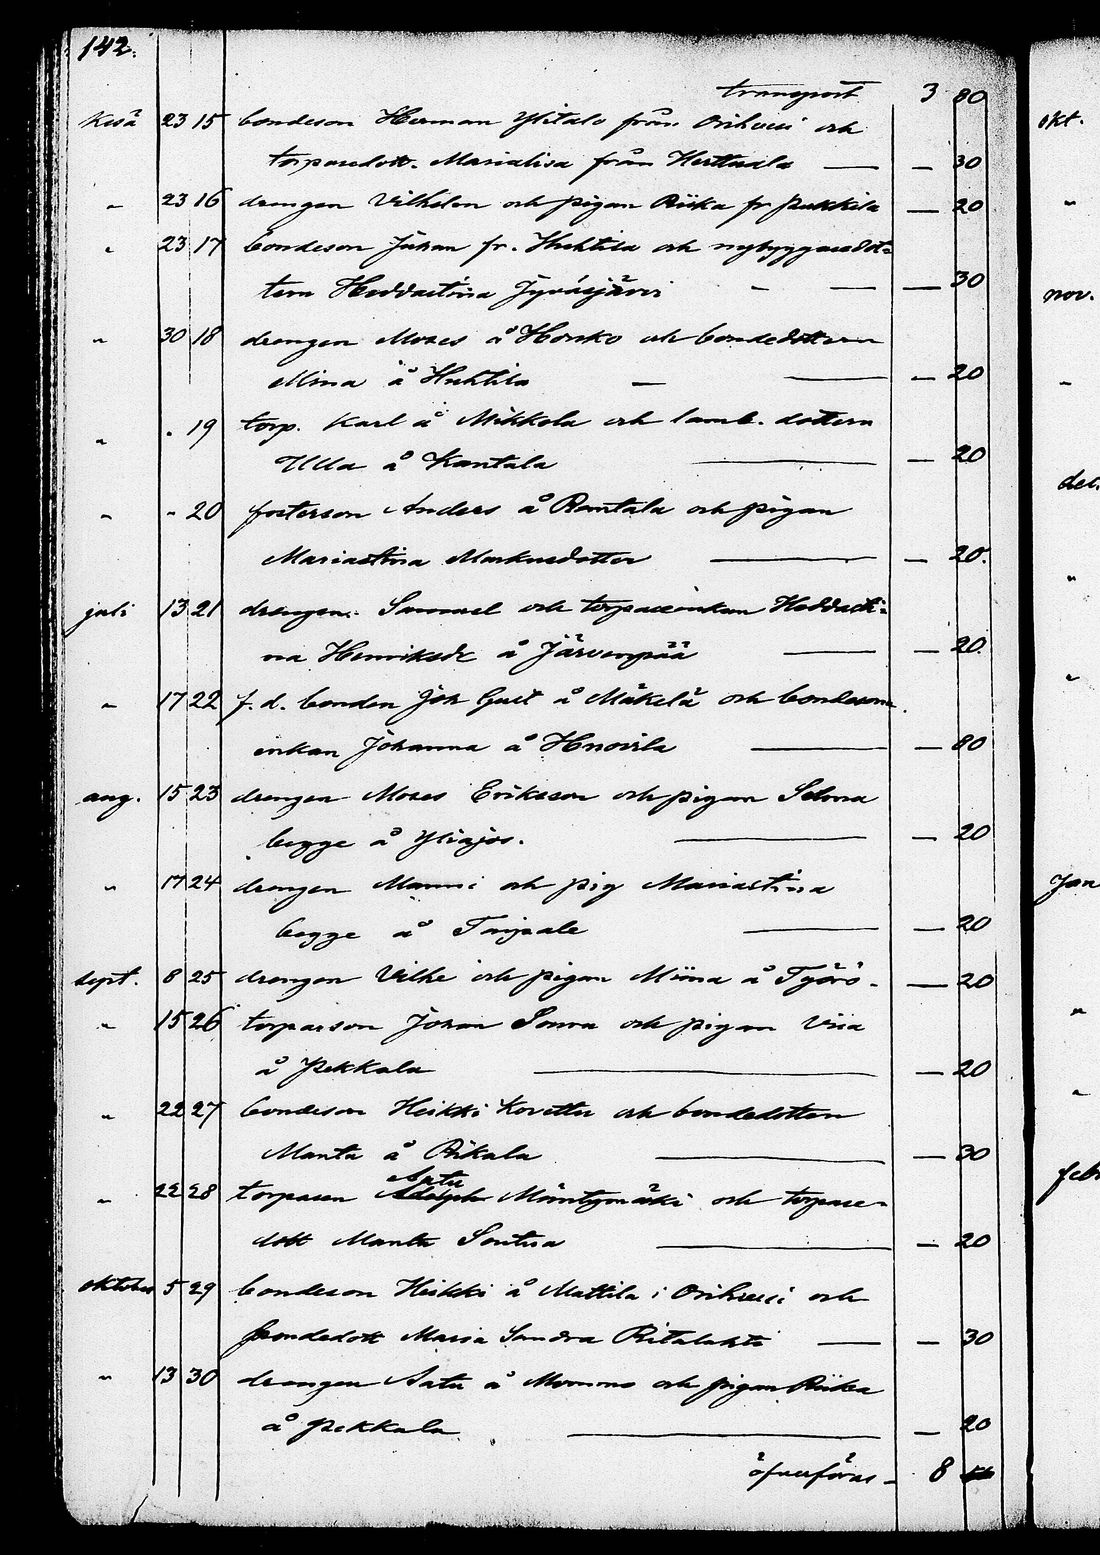 142.
transport 3 80
Kesä 23 15 bondeson Herman Ylitalo från Orihvesi och
torparedott. Marialisa från Herttuala — — 30
" 23 16 drengen Vilhelm och pigan Riika fr Pukkila — 20
" 23 17 bondeson Juhan fr. Huhtila och nybyggaredot=
tern Heddastina Jyväsjärvi — — — 30
" 30 18 drengen Moses å Honko och bondedottern
Mina å Huhtila — — — 20
" " 19 torp. Karl å Mikkola och lamb. dottern
Ulla å Kantala — — 20
" " 20 fosterson Anders å Rantala och pigan
Mariastina Markusdotter — — 20.
juli 13 21 drengen Samuel och torpareenkan Heddasti=
na Henriksdr å Järvenpää — — 20.
" 17 22 f. d. bonden Joh Gust å Mäkelä och bondesons
enkan Johanna å — — 80
aug. 15 23 drengen Moses Eriksson och pigan Selma
begge å Yliajos. — — 20
" 17 24 drengen Manni och pig Mariastina
begge å Taipale — — 20
sept. 8 25 drengen Vilhe och pigan Miina å Työrö — 20
" 15 26 torparson Johan Sonra och pigan Viia
å Pekkala — — 20
" 22 27 bondeson Heikki Kovettu och bondedottern
Manta å Rikala — — 30
Satu
" 22 28 torparen Adolph Mäntymäki och torpare-
dott Manta Sontua — — 20
oktober 5 29 bondeson Heikki å Mattila i Orihvesi och
bondedott Maria Sandra Ritalahti — — 30
" 13 30 drengen Satu å Mommo och pigan Riika
å Pekkala — — 20
öfverföras — 8
okt.
"
nov.
"
dec.
"
"
Jan
"
"
febr